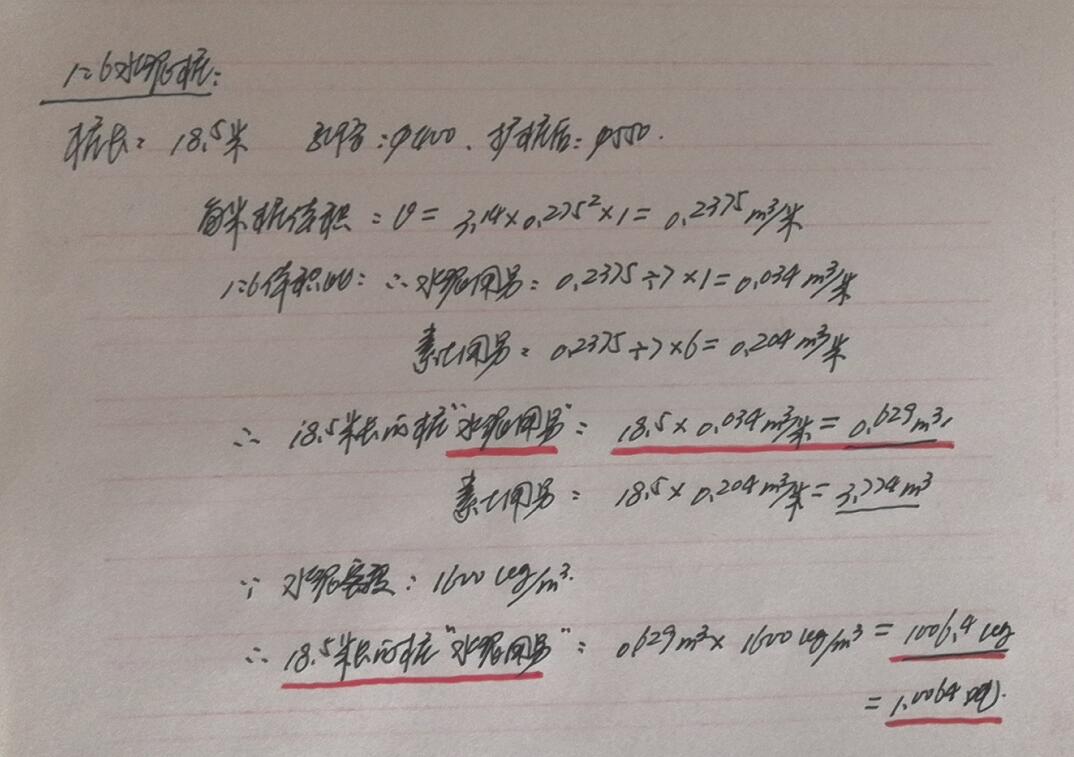 1:6水泥桩:
桩长: 18.5米 孔径:φ400、扩桩后:φ550.
每米桩体积: V= 3.14×0.275²×1= 0.2375m³/米
1:6体积比: ∴水泥用量: 0.2375÷7×1=0.034m³/米
素土用量: 0.2375÷7×6= 0.204m³/米
∴ 18.5米长的桩"水泥用量": 18.5×0.034m³/米= 0.629m³.
素土用量: 18.5×0.204m³/米= 3.774m³
∵ 水泥容重: 1600kg/m³.
∴ 18.5米长的桩"水泥用量": 0.629m³× 1600kg/m³ = 1006.4kg
= 1.0064吨.